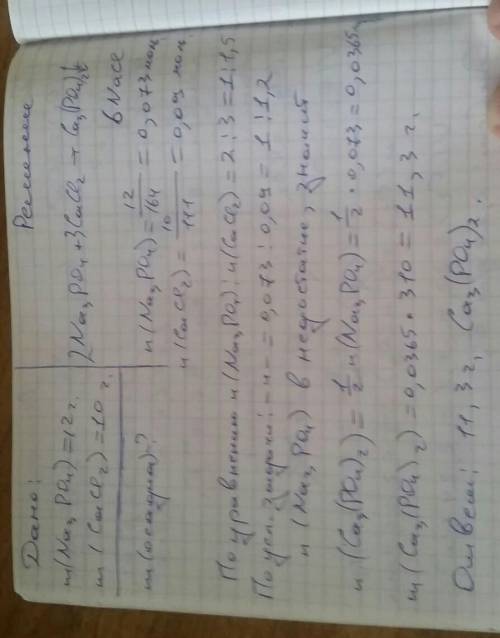 Дано:
m(Na₃PO₄)=12 г.
m(CaCl₂)=10 г.
m(осадка)?
Решение
2Na₃PO₄+3CaCl₂→Ca₃(PO₄)₂↓
6NaCl
n(Na₃PO₄)=12/164=0,073 мол
n(CaCl₂)=10/111=0,09 мол.
По уравнению n(Na₃PO₄):n(CaCl₂)=2:3=1:1,5
По усл. задачи: -"- =0,073:0,09=1:1,2
n(Na₃PO₄) в недостатке, значит
n(Ca₃(PO₄)₂)=1/2 n(Na₃PO₄)=1/2·0,073=0,0365
m(Ca₃(PO₄)₂)=0,0365·310=11,3 г.
Ответ: 11,3 г, Ca₃(PO₄)₂.